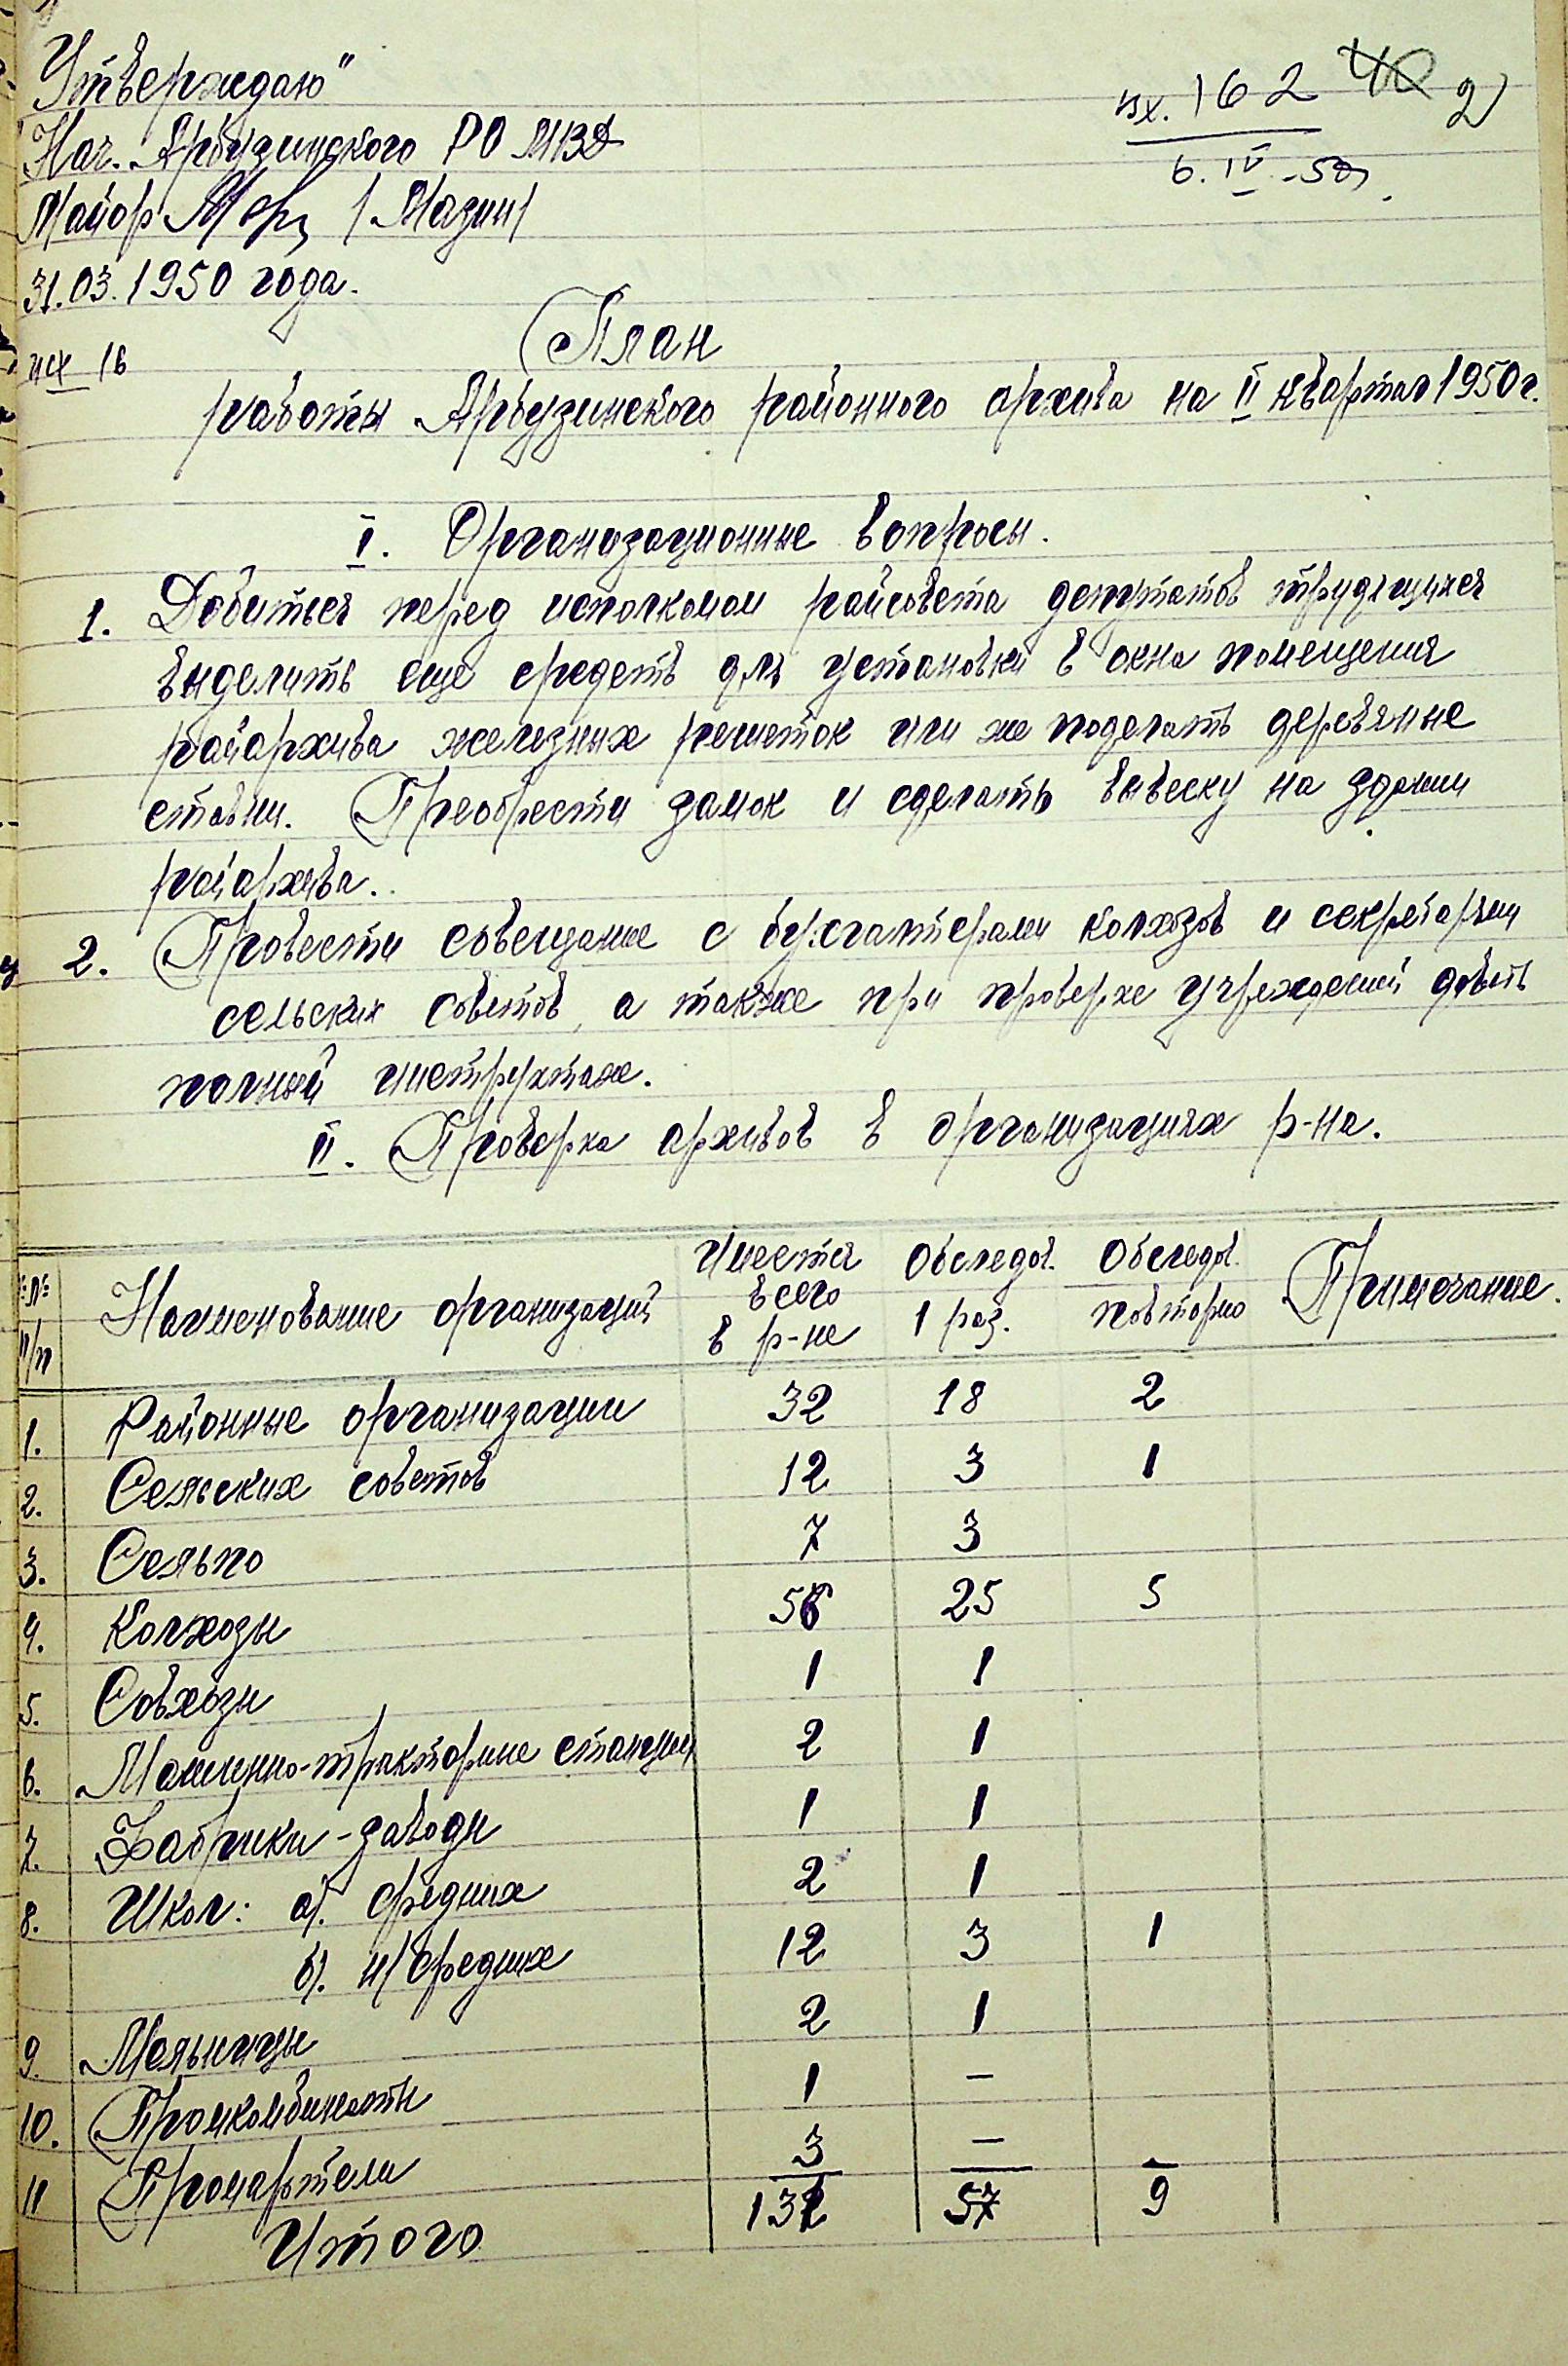 Утверждаю"
Нач. Арбузинского РО МВД
Майор /Мазин/
31.03.1950 года.
вх. 162 40 2
6.IV-50г.
исх 16
План
работы Арбузинского районного архива на II квартал 1950г.
I. Организационные вопросы.
1. Добиться перед исполкомом райсовета депутатов трудящихся
выделить еще средств для установки в окна помещения
райархива железных решеток или же поделать деревянные
ставни. Преобрести замок и сделать вывеску на здании
райархива.
2. Провести совещание с бухгалтерами колхозов и секретарями
сельских советов, а также при проверке учреждений давать
полный инструктаж.
II. Проверка архивов в организациях р-на.
№№ п/п Наименование организаций Имеется всего в р-не Обследов. 1 раз. Обследов. повторно Примечание.
1. Районные организации 32 18 2
2. Сельских советов 12 3 1
3. Сельпо 7 3
4. Колхозы 56 25 5
5. Совхозы 1 1
6. Машинно-тракторные станции 2 1
7. Фабрики-заводы 1 1
8. Школ: а). средних 2 1
б). н/средних 12 3 1
9. Мельницы 2 1
10. Промкомбинаты 1 –
11 Промартели 3 –
Итого 131 57 9